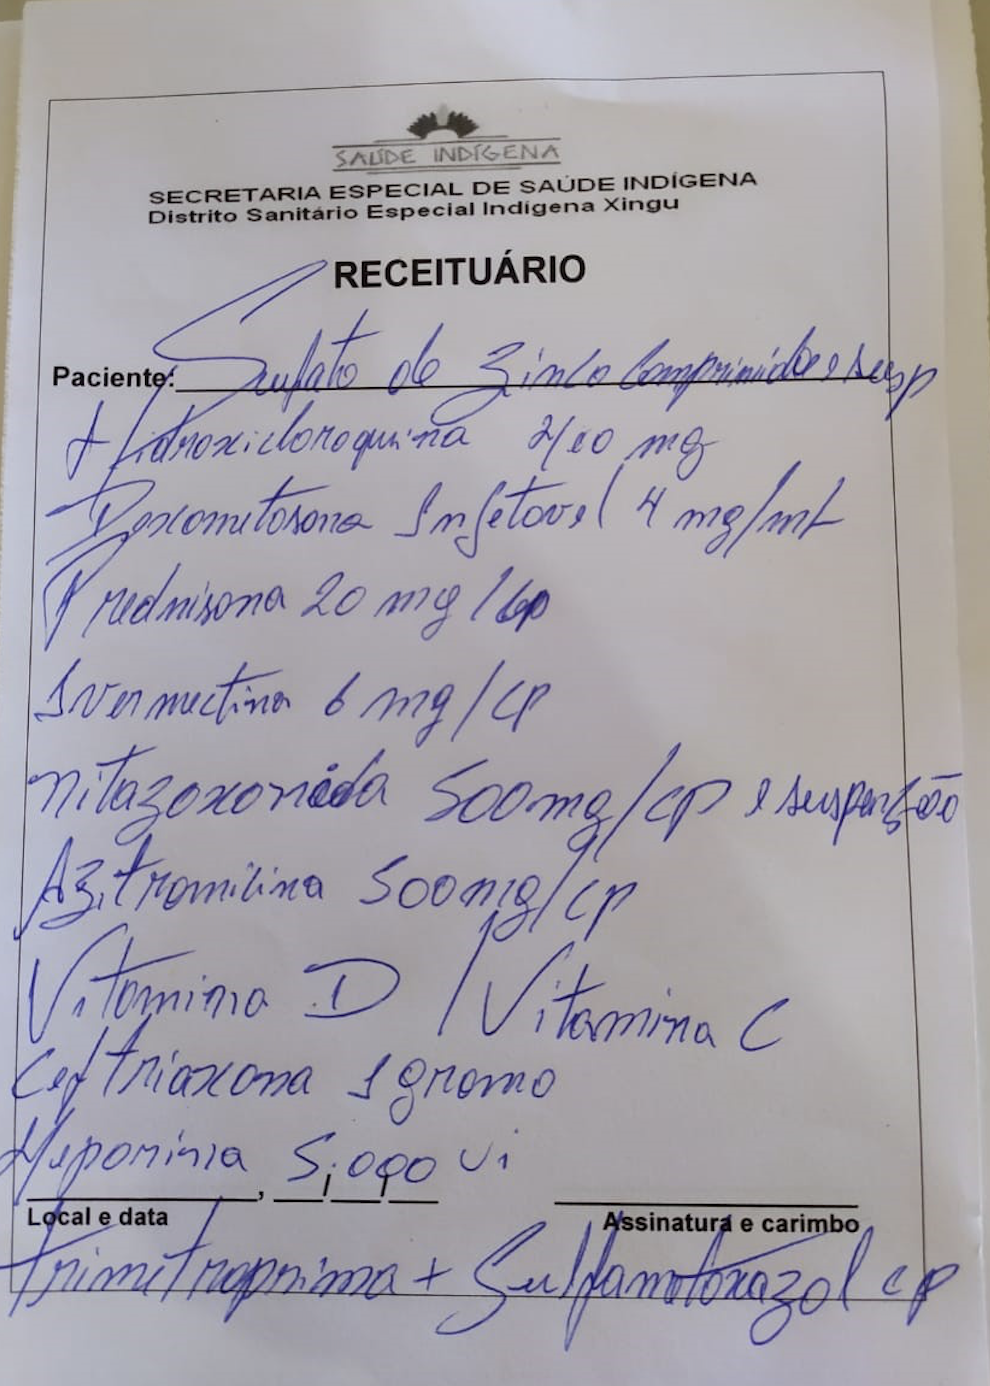 SAÚDE INDÍGENA
SECRETARIA ESPECIAL DE SAÚDE INDÍGENA
Distrito Sanitário Especial Indígena Xingu
RECEITUÁRIO
Paciente: Sulfato de Zinco Comprimido e susp
Hidroxicloroquina 400 mg
Dexametasona Injetavel 4 mg/ml
Prednisona 20 mg/cp
Ivermectina 6 mg/cp
Nitazoxanida 500mg/cp e suspensão
Azitromicina 500mg/cp
Vitamina D / Vitamina C
Ceftriaxona 1 grama
Heparina 5,000 Ui
Local e data
Assinatura e carimbo
Trimetroprima + Sulfametoxazol cp